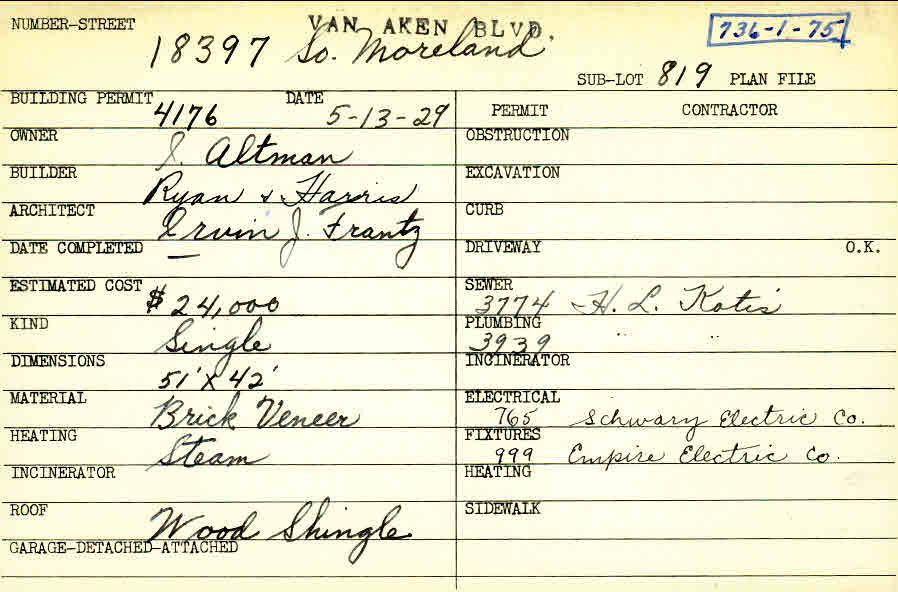 NUMBER-STREET VAN AKEN BLVD. 736-1-75
18397 So. Moreland
SUB-LOT 819 PLAN FILE
BUILDING PERMIT 4176 DATE 5-13-29
PERMIT CONTRACTOR
OWNER J. Altman
OBSTRUCTION
BUILDER Ryan & Harris
EXCAVATION
ARCHITECT Irvin J. Frantz
CURB
DATE COMPLETED —
DRIVEWAY O.K.
ESTIMATED COST $24,000
SEWER 3774 H. L. Kotis
KIND Single
PLUMBING 3939 " "
DIMENSIONS 51' X 42'
INCINERATOR
MATERIAL Brick Veneer
ELECTRICAL 765 Schwarz Electric Co.
HEATING Steam
FIXTURES 999 Empire Electric Co.
INCINERATOR
HEATING
ROOF Wood Shingle
SIDEWALK
GARAGE-DETACHED-ATTACHED